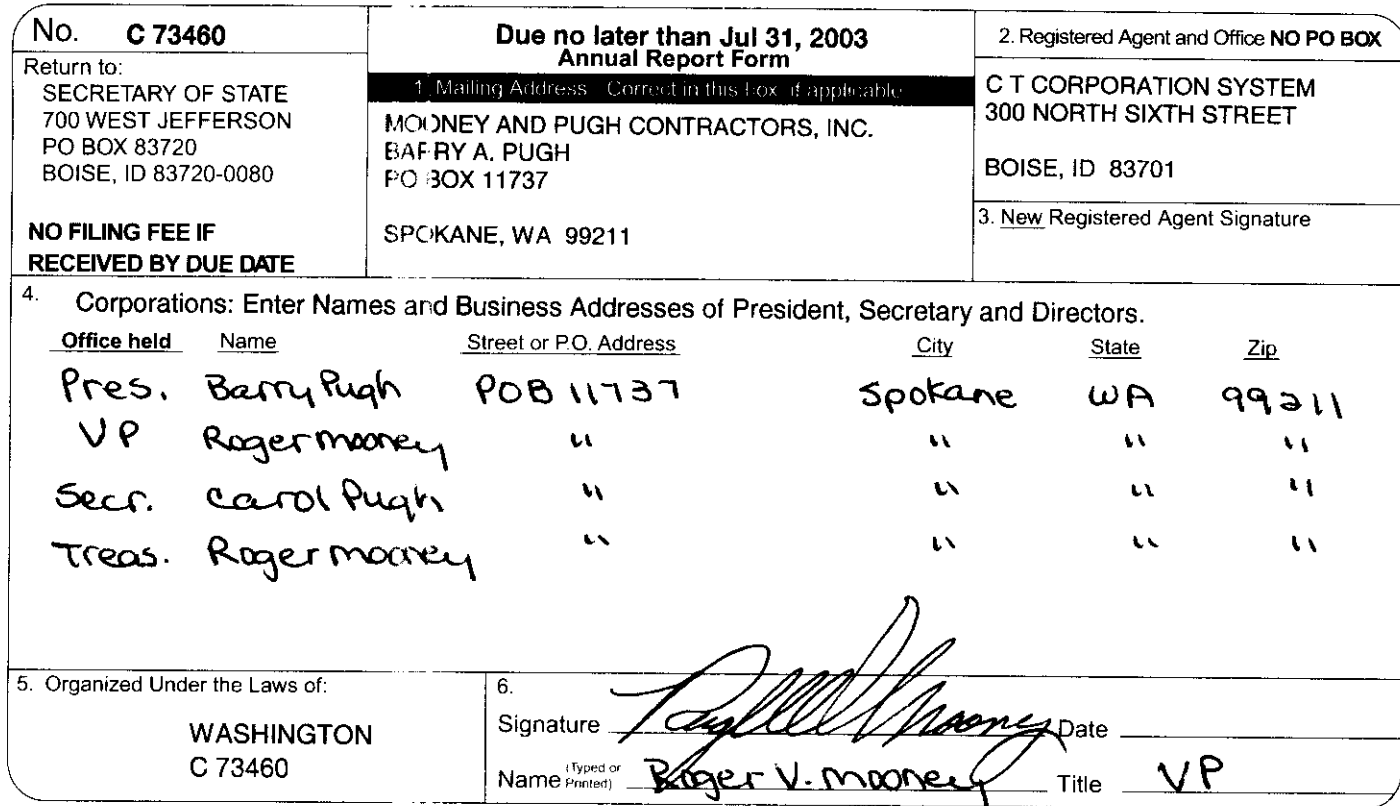 No. C 73460
Return to:
SECRETARY OF STATE
700 WEST JEFFERSON
PO BOX 83720
BOISE, ID 83720-0080
NO FILING FEE IF
RECEIVED BY DUE DATE
Due no later than Jul 31, 2003
Annual Report Form
1. Mailing Address Correct in this box if applicable
MOONEY AND PUGH CONTRACTORS, INC.
BARRY A. PUGH
PO BOX 11737
SPOKANE, WA 99211
2. Registered Agent and Office NO PO BOX
C T CORPORATION SYSTEM
300 NORTH SIXTH STREET
BOISE, ID 83701
3. New Registered Agent Signature
4. Corporations: Enter Names and Business Addresses of President, Secretary and Directors.
Office held Name Street or P.O. Address City State Zip
Pres. Barry Pugh POB 11737 Spokane WA 99211
VP Roger Mooney " " " "
Secr. Carol Pugh " " " "
Treas. Roger Mooney " " " "
5. Organized Under the Laws of:
WASHINGTON
C 73460
6.
Signature Mooney Date
Name (Typed or Printed) Roger V. Mooney Title VP